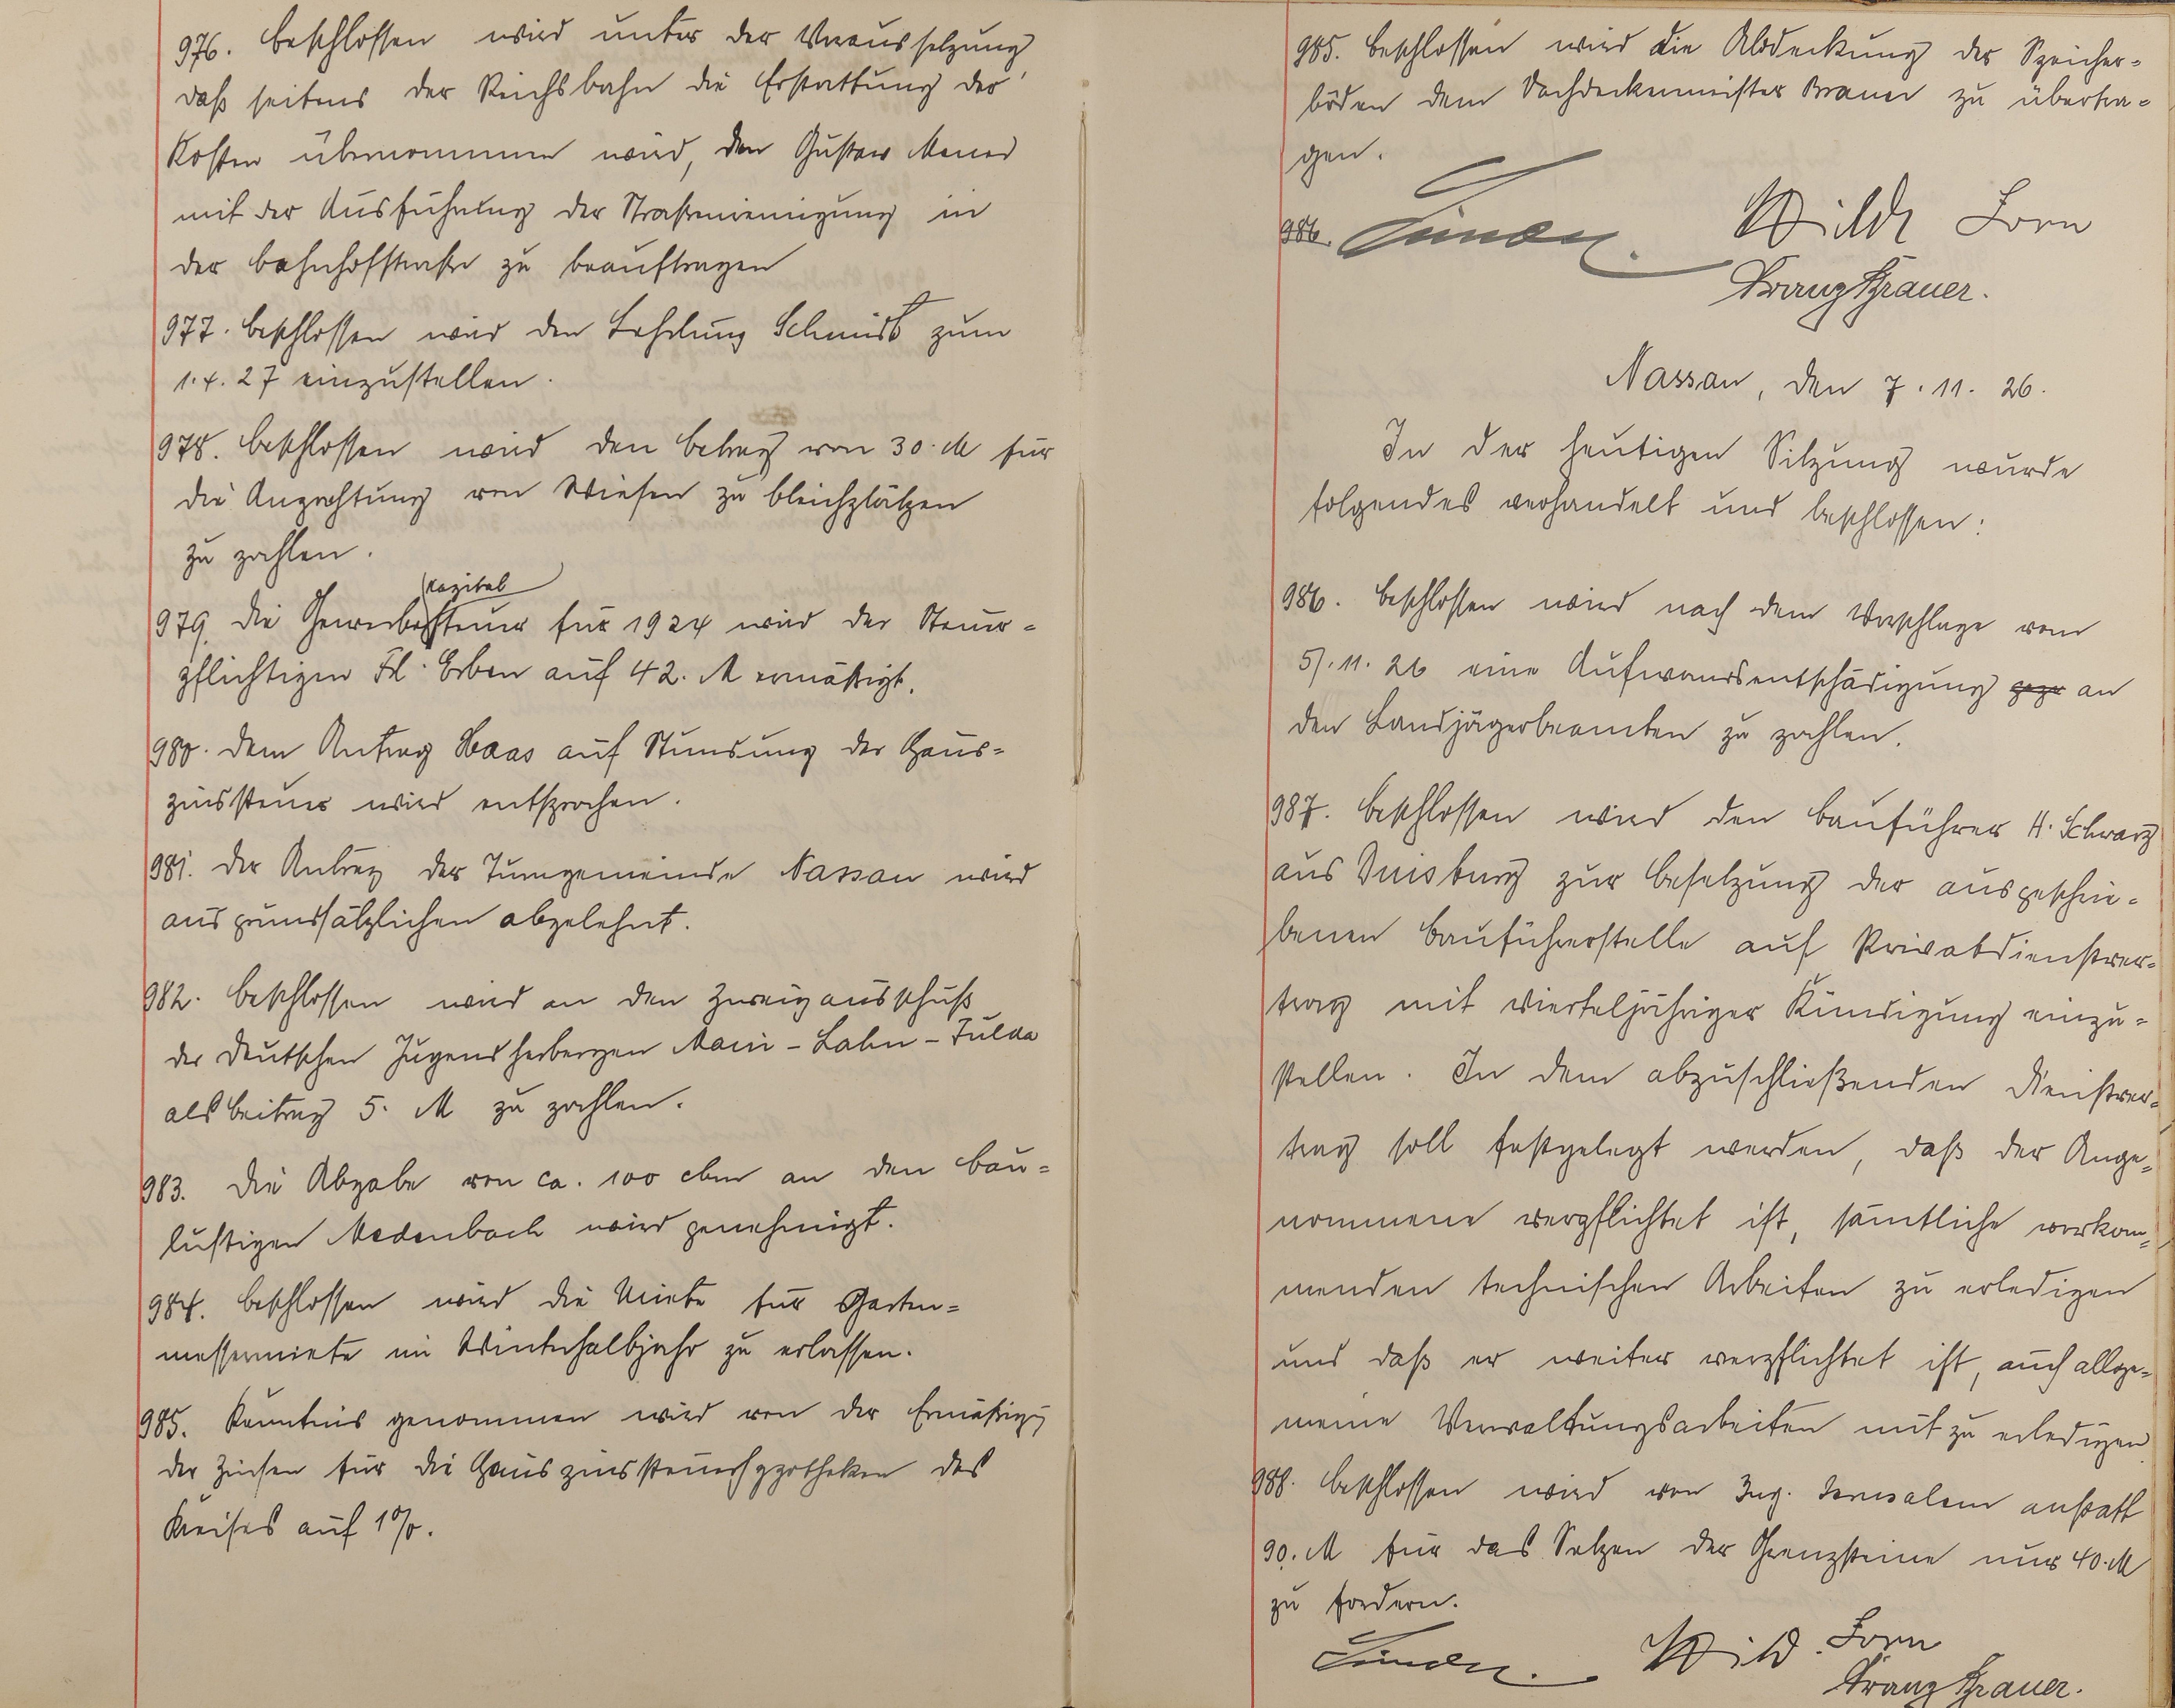 976. Beschlossen wird unter der Voraussetzung
daß seitens der Reichsbahn die Erstattung der
Kosten übernommen wird, den Gustav
mit der Ausführung der Straßenreinigung in
der Bahnhofstraße zu beauftragen
977. Beschlossen wird den Lehrling Schmidt zum
1.4.27 einzustellen.
978. Beschlossen wird den Betrag von 30. M für
die Anpachtung von Wiesen zu Bleichplätzen
zu zahlen.
kapital
979. Die Gewerbesteuer für 1924 wird der Steuer-
pflichtigen Fl. Erben auf 42. M ermäßigt.
980. Dem Antrag Haas auf Stundung der Haus-
zinssteuer wird entsprochen.
981. Der Antrag der Turngemeinde Nassau wird
aus grundsätzlichen abgelehnt.
982. Beschlossen wird an den Zweigausschuß
der Deutschen Jugendherbergen Main-Lahn-Fulda
als Beitrag 5. M zu zahlen.
983. Die Abgabe von ca. 100 cbm an den Bau-
lustigen Medenbach wird genehmigt.
984. Beschlossen wird die Miete für Garten-
messermiete im Winterhalbjahr zu erlassen.
985. Kenntnis genommen wird von der Ermäßigg
der Zinsen für die Hauszinssteuerhypotheken des
Kreises auf 1%.
985. Beschlossen wird die Abdeckung der Speicher-
böden dem Dachdeckermeister Brauer zu übertra-
gen.
986.
Wild Lorn
Franz Brauer.
Nassau, den 7.11.26.
In der heutigen Sitzung wurde
folgendes verhandelt und beschlossen:
986. Beschlossen wird nach dem Vorschlage vom
5.11.26 eine Aufwandsentschädigung an
den Landjägerbeamten zu zahlen.
987. Beschlossen wird den Bauführer H. Schwarz
aus Duisburg zur Besetzung der ausgeschrie-
benen Bauführerstelle auf Privatdienstver-
trag mit vierteljähriger Kündigung einzu-
stellen. In dem abzuschließenden Dienstver-
trag soll festgelegt werden, daß der Ange-
nommene verpflichtet ist, sämtliche vorkom-
menden technischen Arbeiten zu erledigen
und daß er weiter verpflichtet ist, auch allge-
meine Verwaltungsarbeiten mit zu erledigen
988. Beschlossen wird von Ing. Jerusalem anstatt
90. M für das Setzen der Grenzsteine nur 40. M
zu fordern.
Wild. Lorn
Franz Brauer.